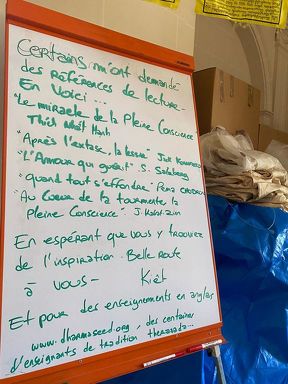 Certains m'ont demandé
des Références de lecture -
En voici ...
"Le miracle de la Pleine Conscience"
Thich Nhat Hanh
"Après l'extase, la lessive" Jack Kornfield
"L'Amour qui guérit" S. Salzberg
"quand tout s'effondre" Pema Chödrön
"Au Coeur de la tourmente la
Pleine Conscience" J. Kabat-Zinn
En espérant que vous y trouviez
de l'inspiration. Belle Route
à vous - Kiêt
Et pour des enseignements en anglais
www.dharmaseed.org, des centaines
d'enseignants de tradition theravada...